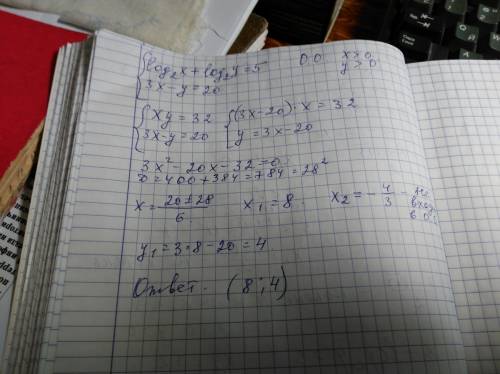 { log₂x + log₂y = 5   ОО   x > 0
3x - y = 20   y > 0
{ xy = 32   { (3x-20)·x = 32
3x-y = 20   y = 3x-20
3x² - 20x - 32 = 0
D = 400 + 384 = 784 = 28²
x = (20 ± 28)/6   x₁ = 8   x₂ = -4/3 - не
вход
в О
y₁ = 3·8 - 20 = 4
Ответ. (8; 4)